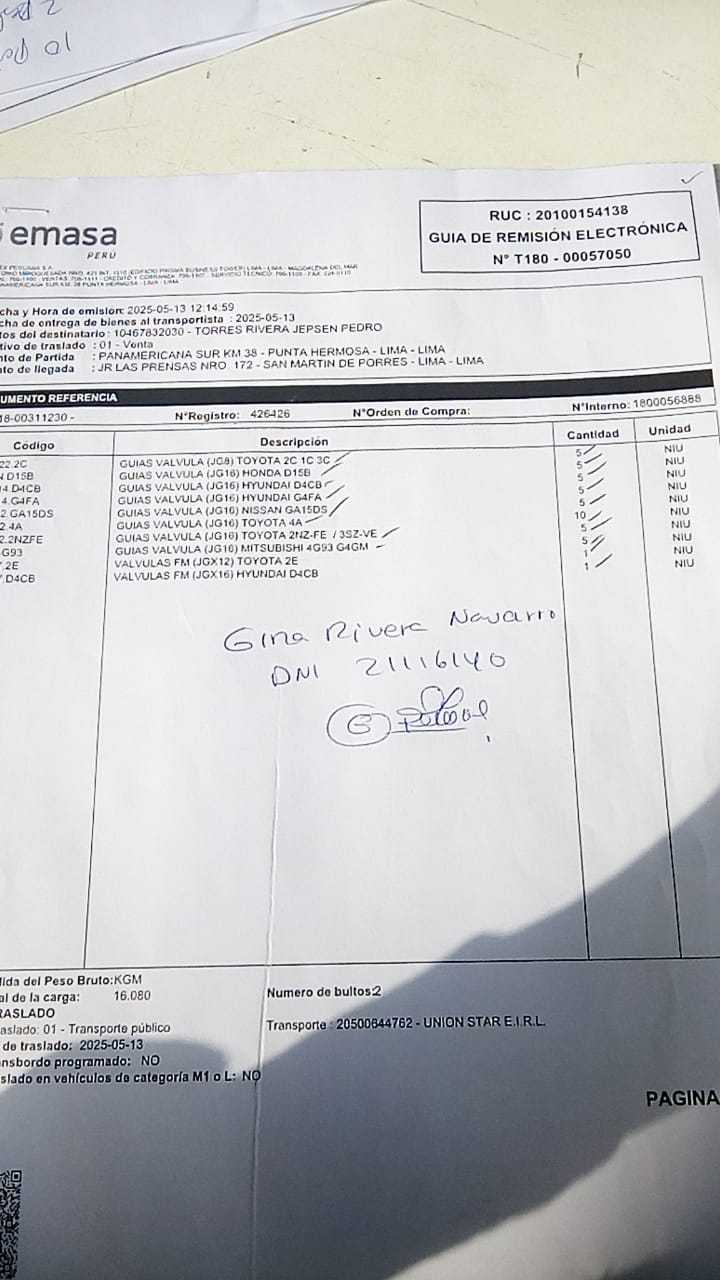 emasa
PERU
RUC : 20100154138
GUIA DE REMISIÓN ELECTRÓNICA
N° T180 - 00057050
cha y Hora de emision: 2025-05-13 12:14:59
cha de entrega de bienes al transportista : 2025-05-13
tos del destinatario : 10467832030 - TORRES RIVERA JEPSEN PEDRO
tivo de traslado : 01 - Venta
nto de Partida : PANAMERICANA SUR KM 38 - PUNTA HERMOSA - LIMA - LIMA
nto de llegada : JR LAS PRENSAS NRO. 172 - SAN MARTIN DE PORRES - LIMA - LIMA
UMENTO REFERENCIA
18-00311230 - N°Registro: 426426 N°Orden de Compra: N°Interno: 1800056888
Código Descripción Cantidad Unidad
22.2C GUIAS VALVULA (JG8) TOYOTA 2C 1C 3C 5 NIU
.D15B GUIAS VALVULA (JG16) HONDA D15B 5 NIU
4.D4CB GUIAS VALVULA (JG16) HYUNDAI D4CB 5 NIU
4.G4FA GUIAS VALVULA (JG16) HYUNDAI G4FA 5 NIU
2.GA15DS GUIAS VALVULA (JG16) NISSAN GA15DS 5 NIU
2.4A GUIAS VALVULA (JG16) TOYOTA 4A 10 NIU
2.2NZFE GUIAS VALVULA (JG16) TOYOTA 2NZ-FE / 3SZ-VE 5 NIU
G93 GUIAS VALVULA (JG16) MITSUBISHI 4G93 G4GM 5 NIU
.2E VALVULAS FM (JGX12) TOYOTA 2E 1 NIU
.D4CB VALVULAS FM (JGX16) HYUNDAI D4CB 1 NIU
Gina Rivera Navarro
DNI 21116140
dida del Peso Bruto:KGM
al de la carga: 16.080 Numero de bultos:2
RASLADO
aslado: 01 - Transporte público Transporte : 20500644762 - UNION STAR E.I.R.L.
de traslado: 2025-05-13
ansbordo programado: NO
slado en vehículos de categoría M1 o L: NO
PAGINA